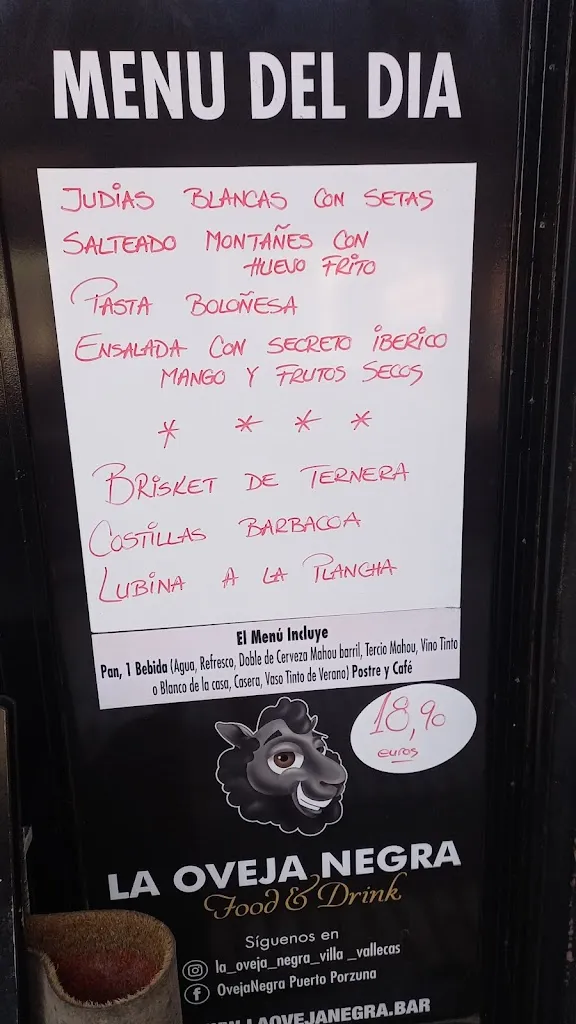 MENU DEL DIA
JUDIAS BLANCAS CON SETAS
SALTEADO MONTAÑES CON
HUEVO FRITO
PASTA BOLOÑESA
ENSALADA CON SECRETO IBERICO
MANGO Y FRUTOS SECOS
* * * *
BRISKET DE TERNERA
COSTILLAS BARBACOA
LUBINA A LA PLANCHA
El Menú Incluye
Pan, 1 Bebida (Agua, Refresco, Doble de Cerveza Mahou barril, Tercio Mahou, Vino Tinto
o Blanco de la casa, Casera, Vaso Tinto de Verano) Postre y Café
18,90
euros
LA OVEJA NEGRA
Food & Drink
Síguenos en
la_oveja_negra_villa _vallecas
OvejaNegra Puerto Porzuna
LAOVEJANEGRA.BAR